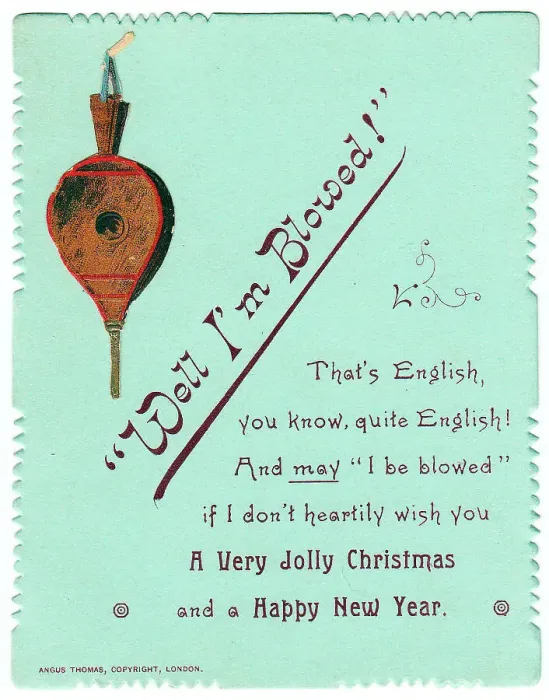 "Well I'm Blowed!"
That's English,
you know, quite English!
And may "I be blowed"
if I don't heartily wish you
A Very Jolly Christmas
and a Happy New Year.
ANGUS THOMAS, COPYRIGHT, LONDON.